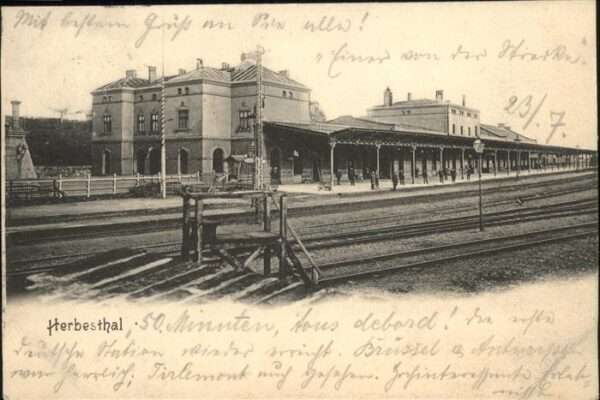 Mit bestem Gruß an Sie alle!
"Einer von der Strecke"
23/7.
Herbesthal. 50 Minuten, tous debord! die erste
deutsche Station wieder erreicht. Brüssel u. Antwerpen
war herrlich; Tirlemont auch gesehen. Hochinteressante